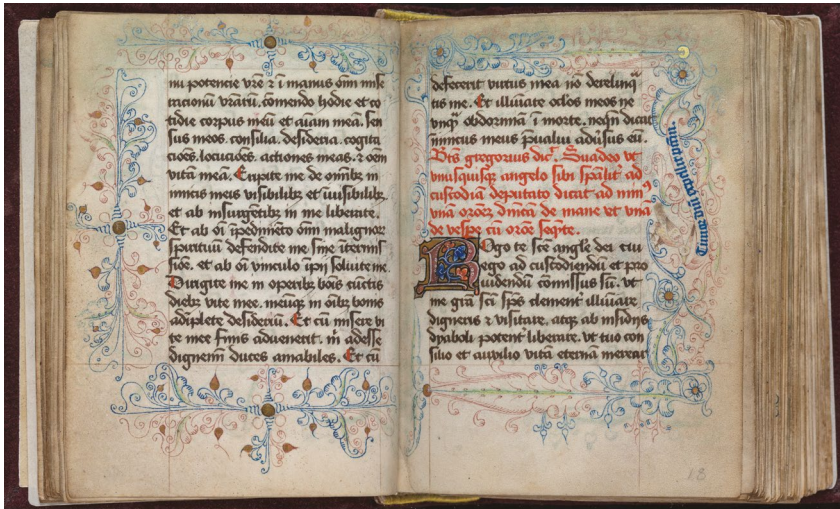 nu potencie vr̄e ⁊ i manus om̄ mise
racionū vr̄arū. comendo hodie et co
tidie corpus meū et aīam meā. sen
sus meos. consilia. desideria. cogita
cōes. locucōes. actiones meas. ⁊ oēm
vitā meā. Eripite me de om̄ibꝫ in
imicis meis visibilibꝫ et īuisibilibꝫ
et ab insurgētibꝫ in me liberate.
Et ab oī īpedimēto om̄ malignoꝝ
spirituū defendite me sine ītermis
siōe. et ab oī vinculo īpij soluite me.
Dirigite me in operibꝫ bōis cūctis
diebꝫ vite mee. meūqꝫ in ōibꝫ bonis
adīplete desideriū. Et cū misere vi
te mee finis aduenerit. m̄ adesse
dignem̄ duces amabiles. Et cū
defecerit virtus mea nō derelinq̄
tis me. Et illūīate oc̄los meos ne
vnq̄ obdormiā ī morte. neqn̄ dicat
inimicus meus p̄ualui adūsus eū.
Bt̄s gregorius dic̄. Suadeo vt
vnusquisqꝫ angelo sibi sp̄alit̄ ad
custodiā deputato dicat ad min⁹
vnā orōeꝫ dn̄icā de mane et vnā
de vespe cū orōe seq̄te.
Rogo te sc̄e angl̄e dei cui
ego ad custodiendū et pro
uidendū cōmissus sū. vt
me grā sc̄i sp̄s clement̄ illūīare
digneris ⁊ visitare. atqꝫ ab insidijs
dyaboli potent̄ liberare. vt tuo con
silio et auxilio vitā eternā mereat̄
18